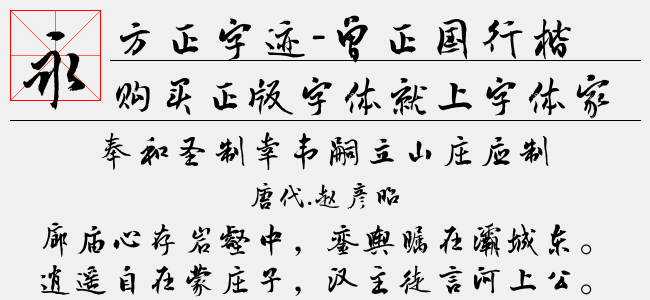 永
方正字迹-曾正国行楷
购买正版字体就上字体家
奉和圣制幸韦嗣立山庄应制
唐代.赵彦昭
廊庙心存岩壑中，銮舆瞩在灞城东。
逍遥自在蒙庄子，汉主徒言河上公。